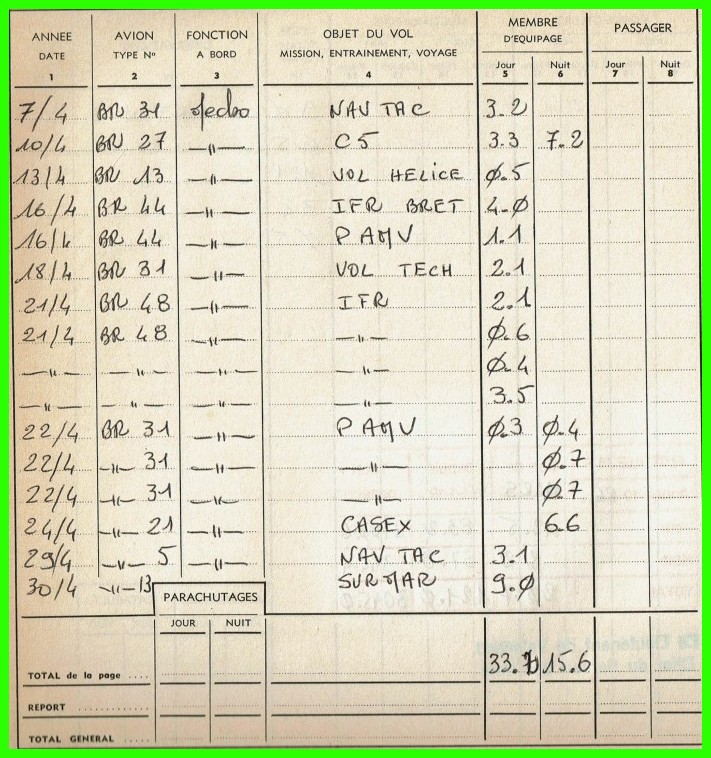 ANNEE AVION FONCTION OBJET DU VOL MEMBRE D'EQUIPAGE PASSAGER
DATE TYPE N° A BORD MISSION, ENTRAINEMENT, VOYAGE Jour Nuit Jour Nuit
1 2 3 4 5 6 7 8
7/4 BR 31 NAV TAC 3.2
10/4 BR 27 —"— C5 3.3 7.2
13/4 BR 13 —"— VOL HELICE Ø.5
16/4 BR 44 —"— IFR BRET 4.Ø
16/4 BR 44 —"— PAMV 1.1
18/4 BR 31 —"— VOL TECH 2.1
21/4 BR 48 —"— IFR 2.1
21/4 BR 48 —"— —"— Ø.6
—"— —"— —"— —"— Ø.4
—"— —"— —"— —"— 3.5
22/4 BR 31 —"— PAMV Ø.3 Ø.4
22/4 —"— 31 —"— —"— Ø.7
22/4 —"— 31 —"— —"— Ø.7
24/4 —"— 21 —"— CASEX 6.6
29/4 —"— 5 —"— NAV TAC 3.1
30/4 —"— 13 SURMAR 9.Ø
PARACHUTAGES
JOUR NUIT
TOTAL de la page .... 15.6
REPORT
TOTAL GENERAL